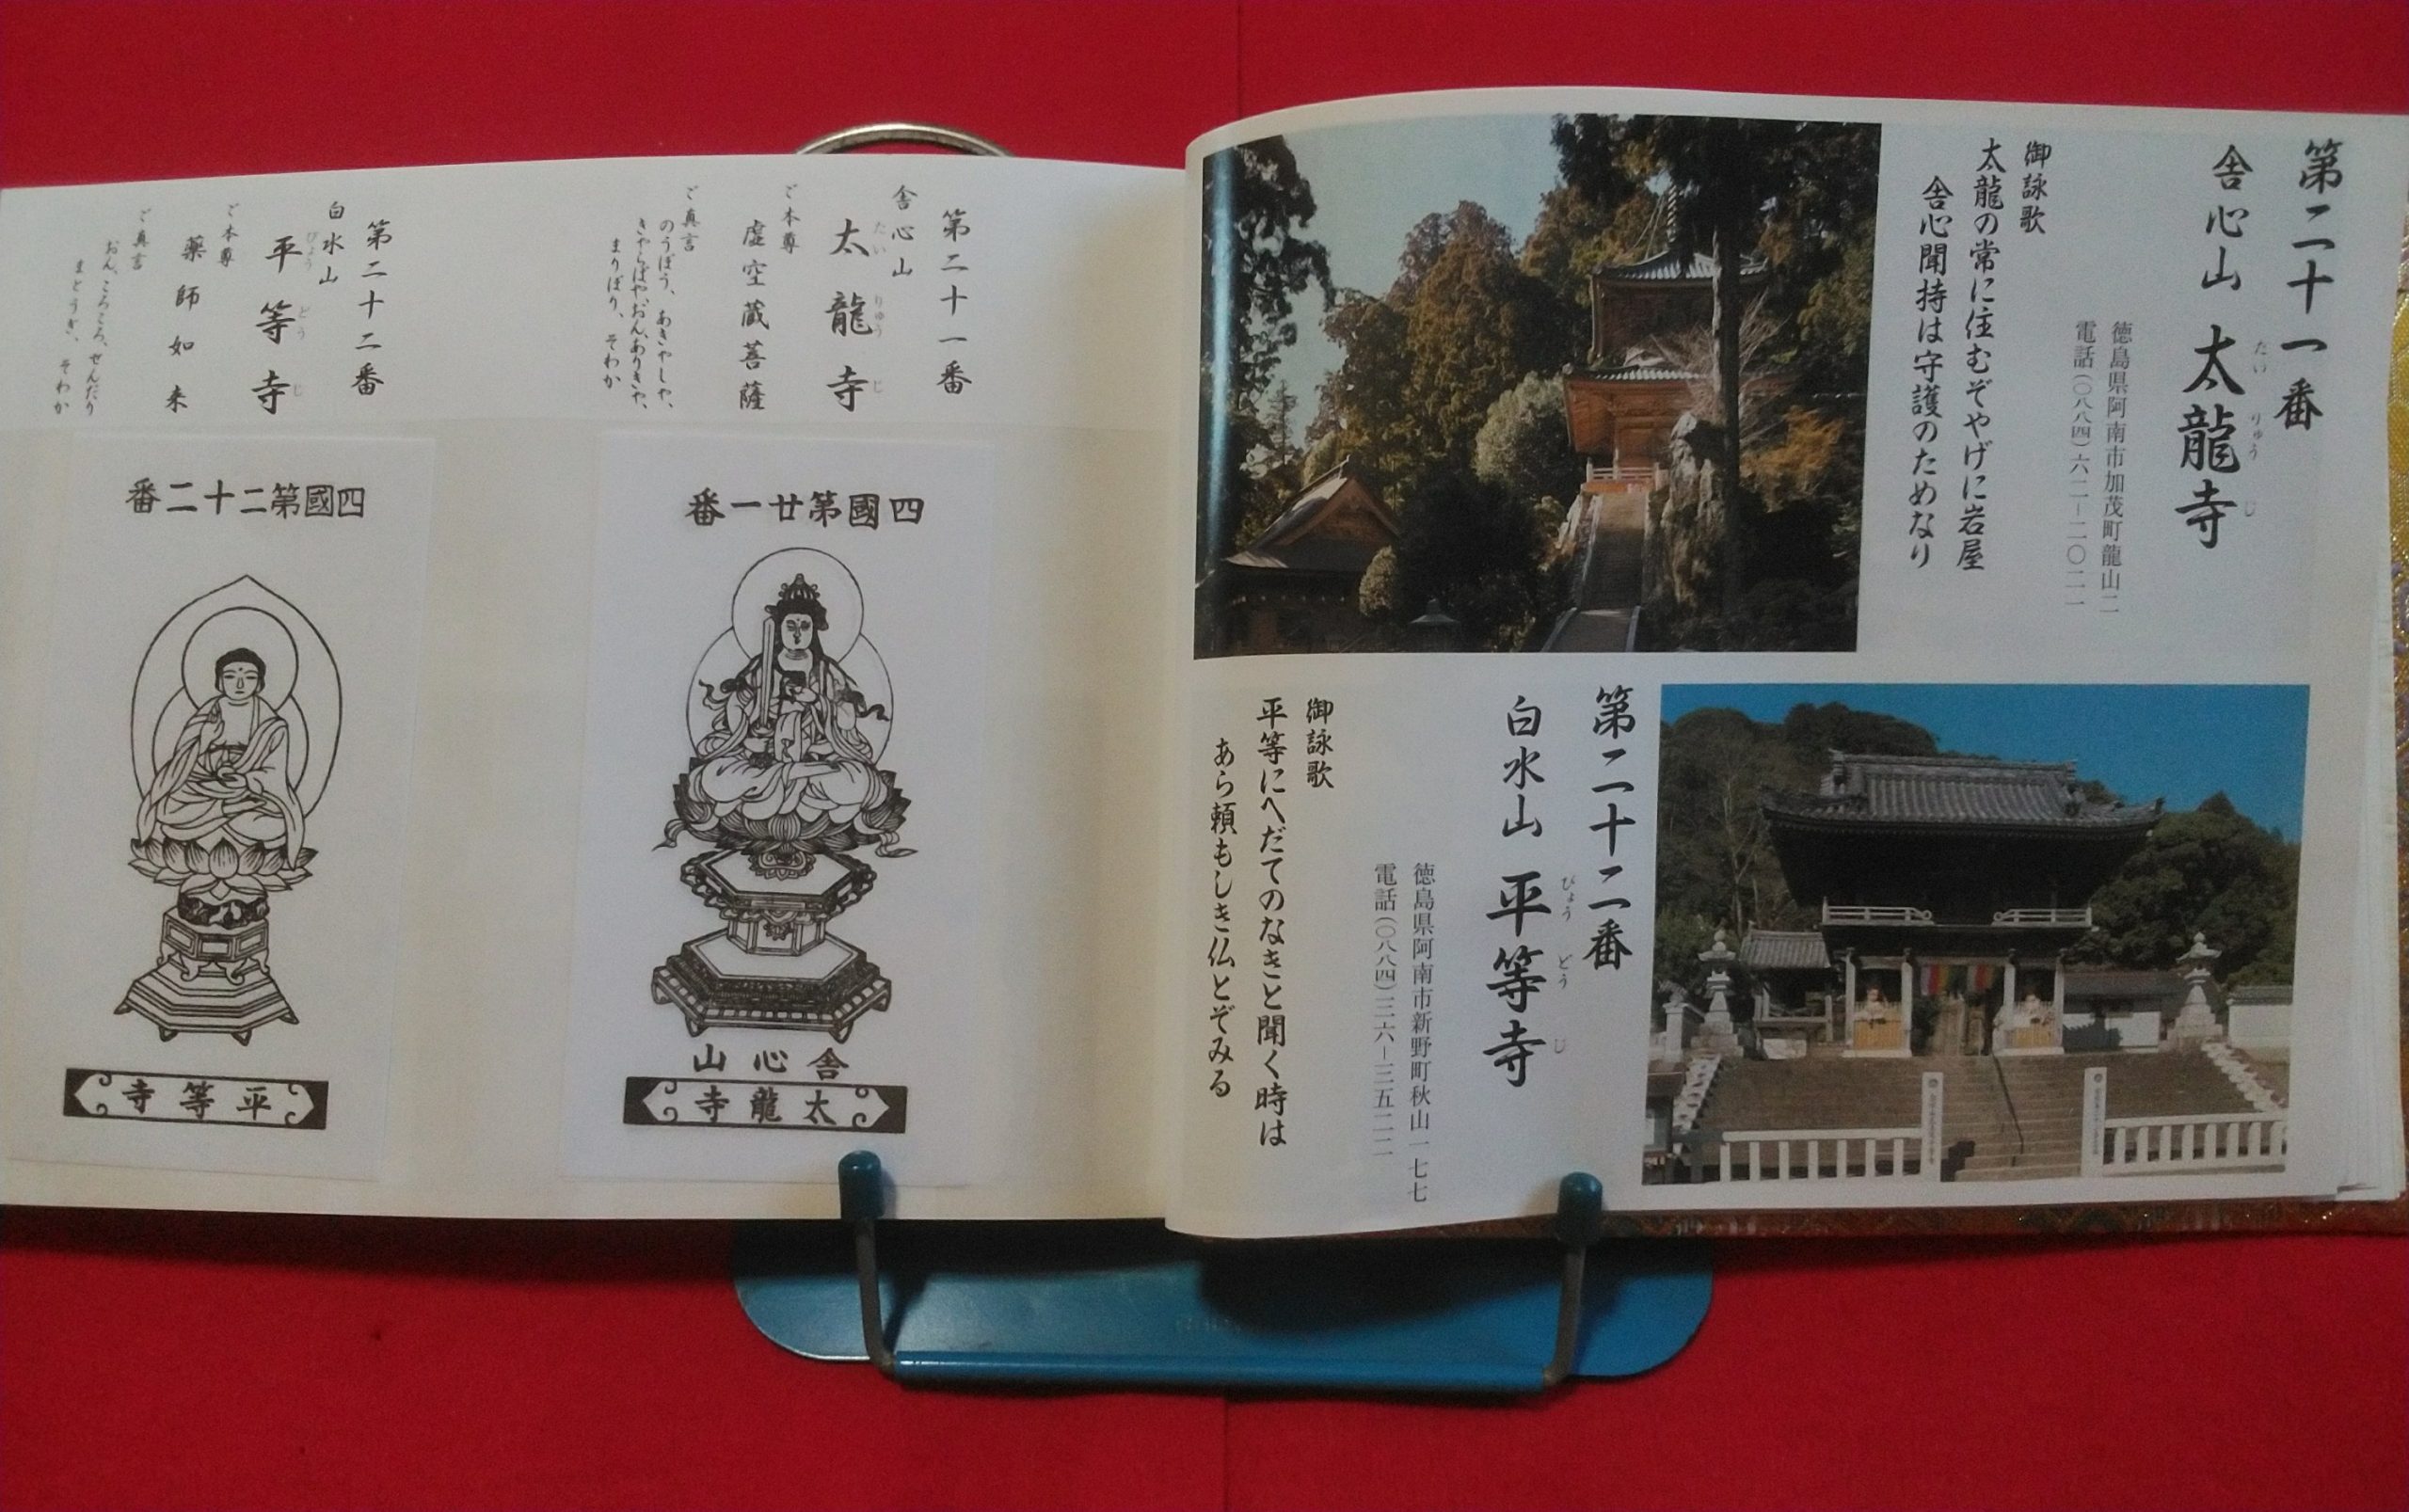 第二十一番
舎心山 太龍寺
たいりゅうじ
徳島県阿南市加茂町龍山二
電話(〇八八四)六二-二〇二一
御詠歌
太龍の常に住むぞやげに岩屋
舎心聞持は守護のためなり
第二十二番
白水山 平等寺
びょうどうじ
徳島県阿南市新野町秋山一七七
電話(〇八八四)三六-三五二二
御詠歌
平等にへだてのなきと聞く時は
あら頼もしき仏とぞみる
第二十一番
舎心山
たいりゅうじ
太龍寺
ご本尊
虚空蔵菩薩
ご真言
のうぼう、あきゃしゃ、
きゃらばや、おん、ありきゃ、
まりぼり、そわか
四國第廿一番
舎心山
太龍寺
第二十二番
白水山
びょうどうじ
平等寺
ご本尊
薬師如来
ご真言
おん、ころころ、せんだり
まとうぎ、そわか
四國第二十二番
平等寺